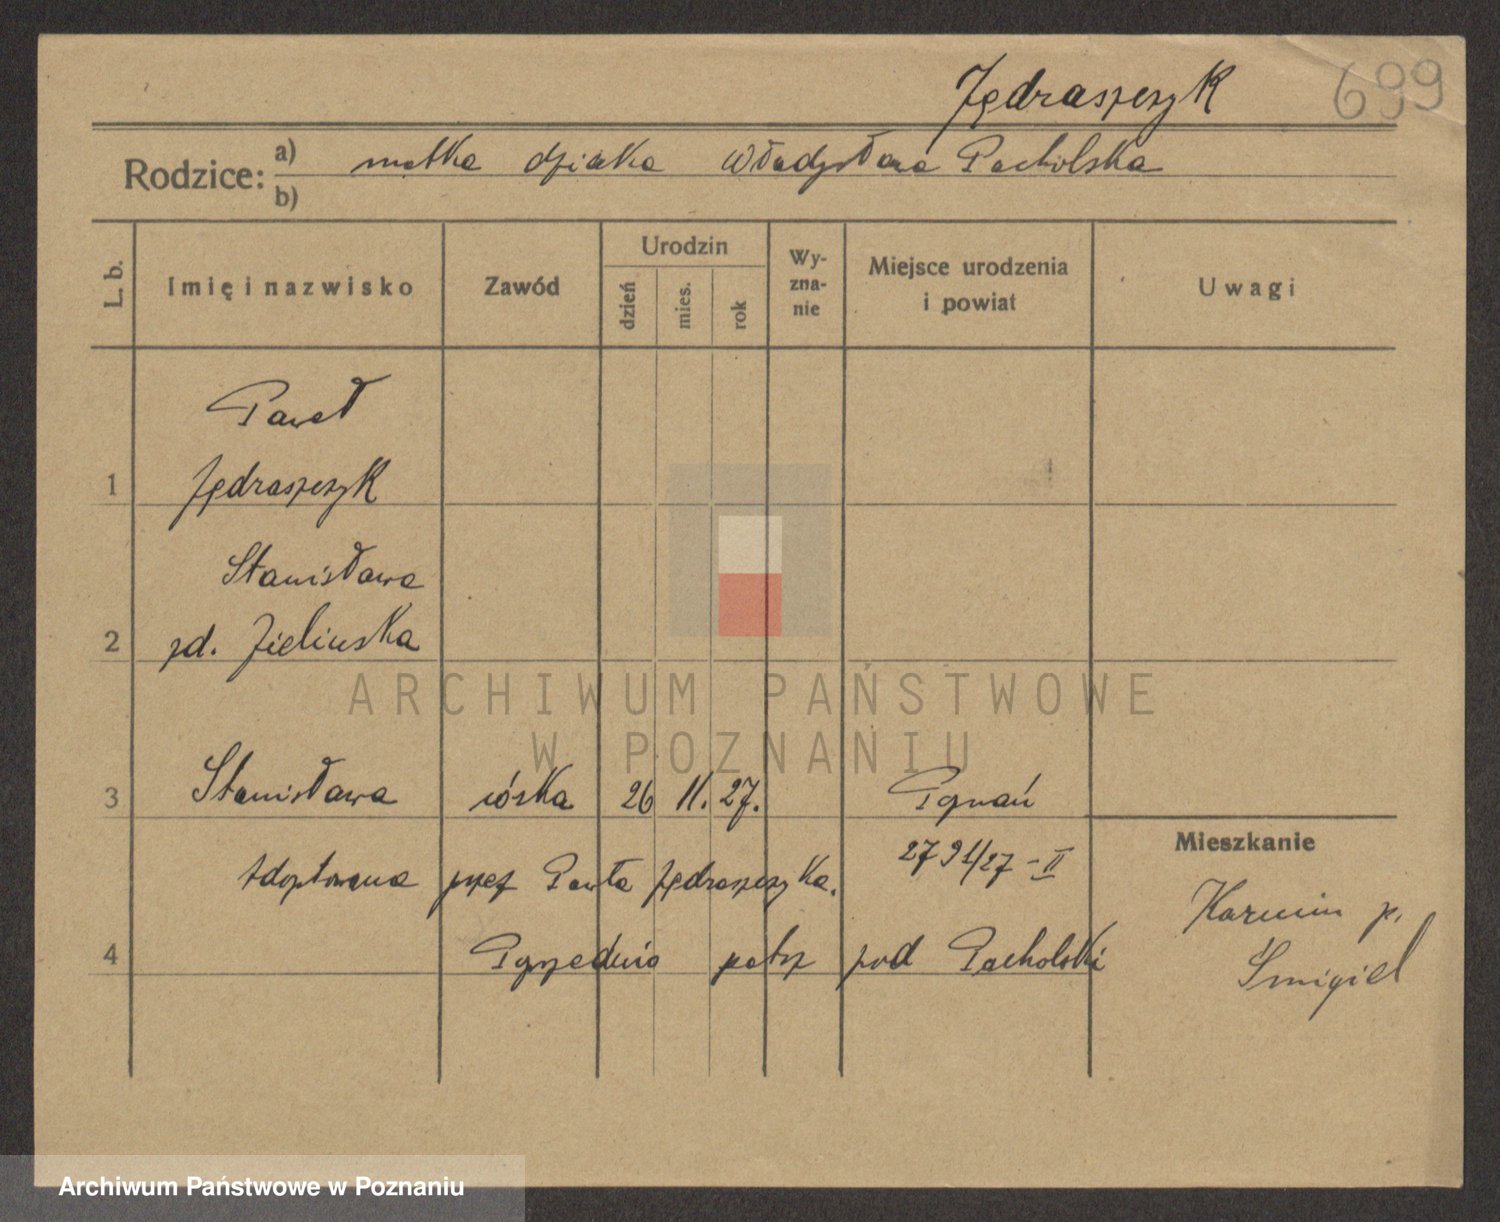 Jędraszczyk 699
Rodzice: a) matka dziecka Władysława Pacholska
b)
L. b.
Imię i nazwisko
Zawód
Urodzin
dzień
mies.
rok
Wy-
zna-
nie
Miejsce urodzenia
i powiat
Uwagi
Paweł
1 Jędraszczyk
Stanisława
2 zd. Zielinska
ARCHIWUM PAŃSTWOWE
W POZNANIU
3 Stanisława córka 26 11. 27. Poznań
Mieszkanie
2791/27 - II
Adoptowana przez Pawła Jędraszczyka.
Karmin p.
4 Poprzednio patrz pod Pacholski
Śmigiel
Archiwum Państwowe w Poznaniu